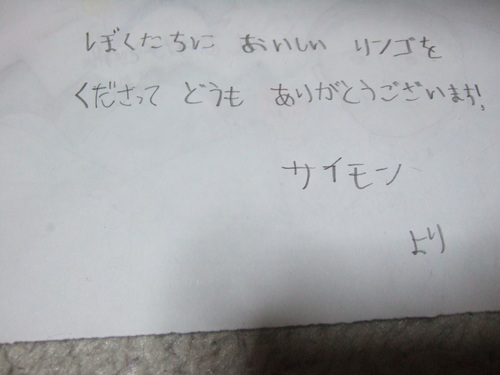 ぼくたちに おいしい リンゴを
くださって どうも ありがとうございます!
サイモン
より